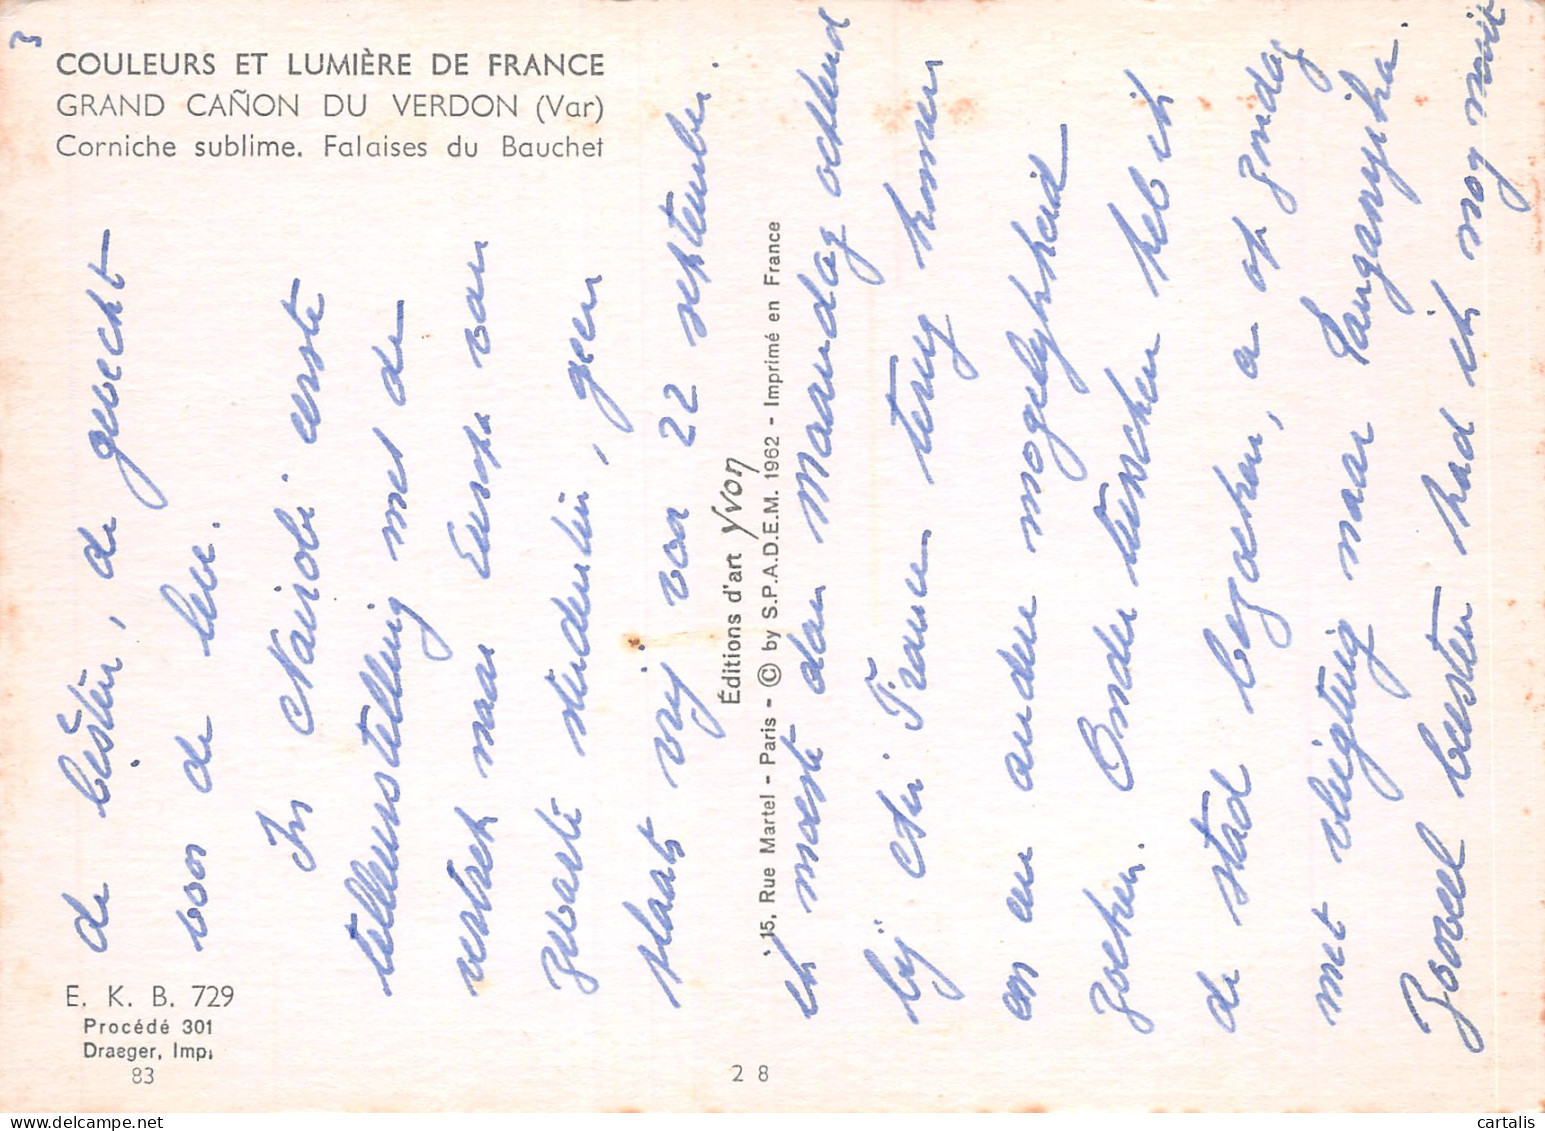 3
COULEURS ET LUMIÈRE DE FRANCE
GRAND CAÑON DU VERDON (Var)
Corniche sublime. Falaises du Bauchet
de beesten, de gevecht
voor de leu.
In Nairobi eerste
telleurstelling met de
vertrek naar Europa van
zwarte studenten, geen
plaats vrij voor 22 september.
ik moeste dan maandag ochtend
bij Air France terug komen
om een andere mogelykheid
zoeken. Ondertusschen heb ik
de stad bezoeken, en op zondag
met vliegtuig naar Tanganyika.
Zooveel beesten had ik nog nooit
Éditions d'art Yvon
15, Rue Martel - Paris - © by S.P.A.D.E.M. 1962 - Imprimé en France
E. K. B. 729
Procédé 301
Draeger, Imp.
83
28
cartalis